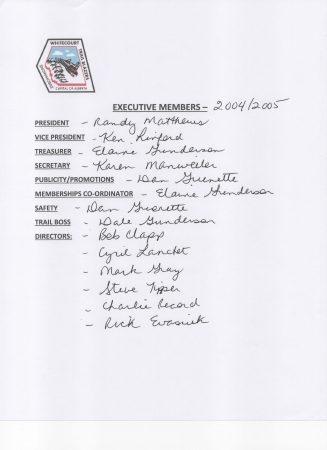 WHITECOURT
TRAIL BLAZERS
CAPITAL OF ALBERTA
EXECUTIVE MEMBERS – 2004/2005
PRESIDENT - Randy Matthews
VICE PRESIDENT - Ken Linford
TREASURER - Elaine Gunderson
SECRETARY - Karen Manweiler
PUBLICITY/PROMOTIONS - Dan Guenette
MEMBERSHIPS CO-ORDINATOR - Elaine Gunderson
SAFETY - Dan Guenette
TRAIL BOSS - Dale Gunderson
DIRECTORS: - Bob Clapp
- Cyril Lanctot
- Mark Gray
- Steve Tipper
- Charlie Record
- Rick